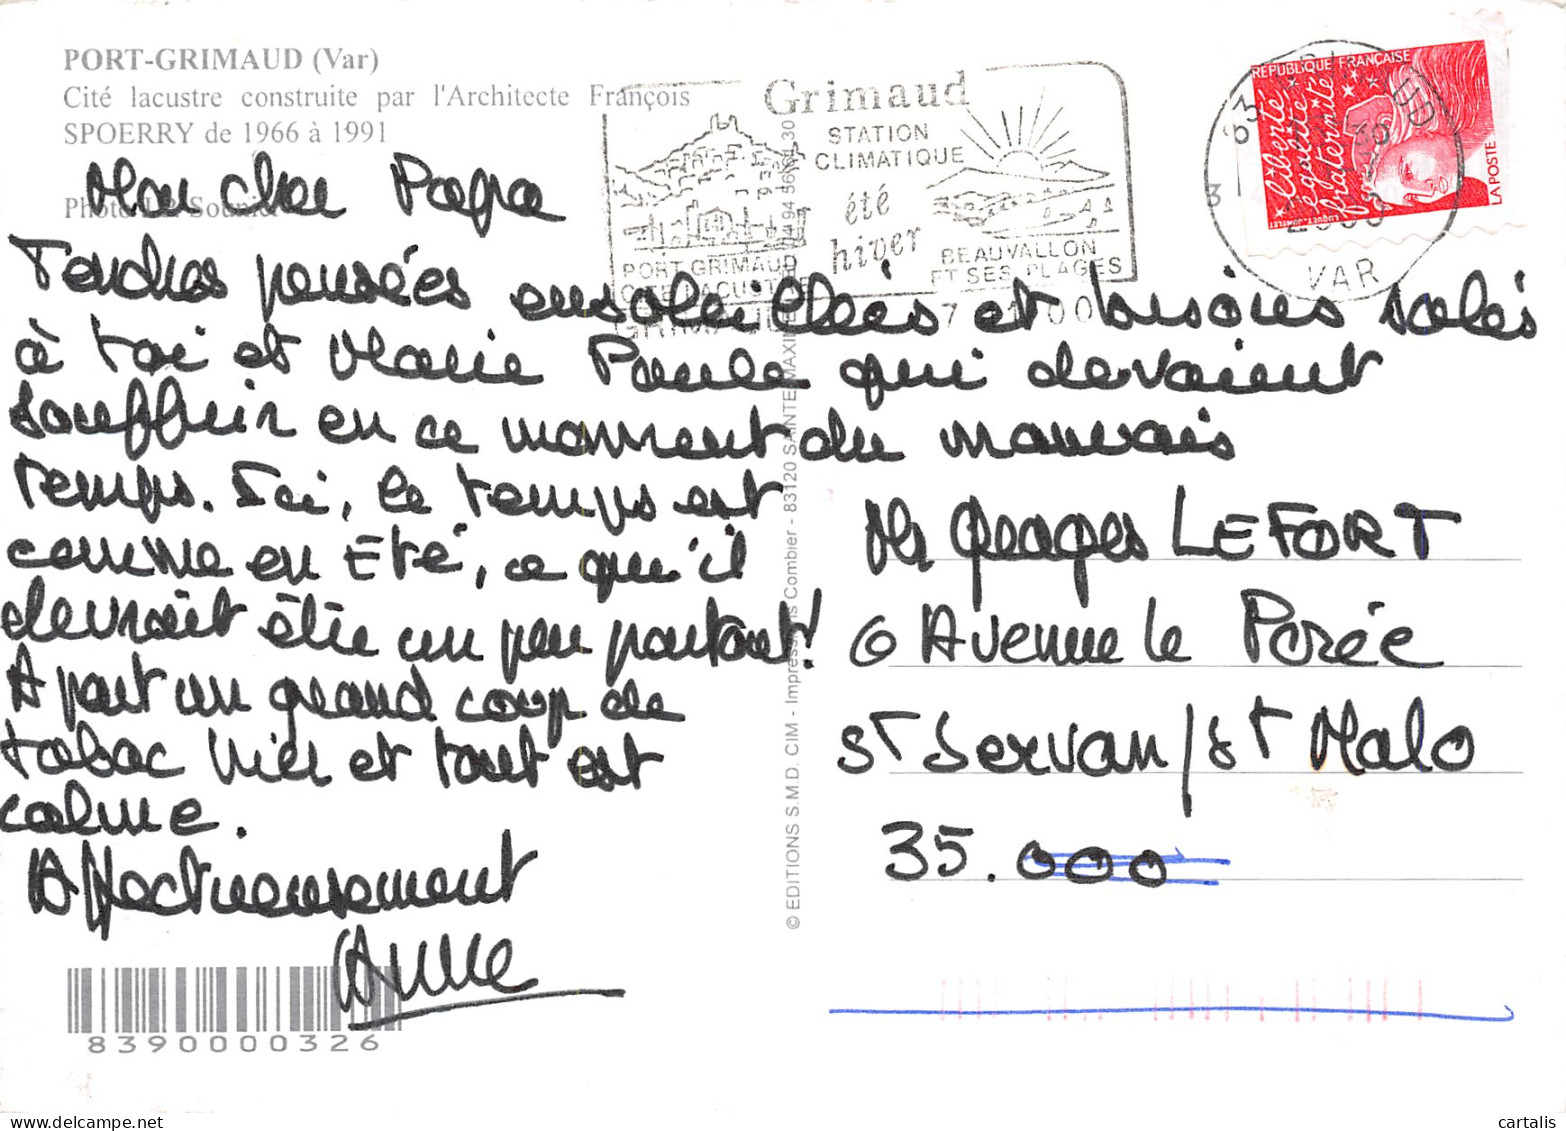 PORT-GRIMAUD (Var)
Cité lacustre construite par l'Architecte François
SPOERRY de 1966 à 1991
Mon cher Papa
Tendres pensées ensoleillées et bisous salés
à toi et Marie Paule qui devaient
souffrir en ce moment du mauvais
temps. Ici, le temps est
comme en Eté, ce qu'il
devrait être un peu partout!
A part un grand coup de
tabac hier et tout est
calme.
Affectueusement
Anne
8390000326
© EDITIONS S.M.D. CIM - Combier - 83120 SAINTE MAXIME
Grimaud
STATION
CLIMATIQUE
été
hiver
PORT GRIMAUD
CITE LACUSTRE
BEAUVALLON
ET SES PLAGES
VAR
RÉPUBLIQUE FRANÇAISE
liberté
égalité
fraternité
LA POSTE
LUQUET-JUMELET
Mr Georges LEFORT
6 Avenue le Porée
St Servan/St Malo
35.000
cartalis